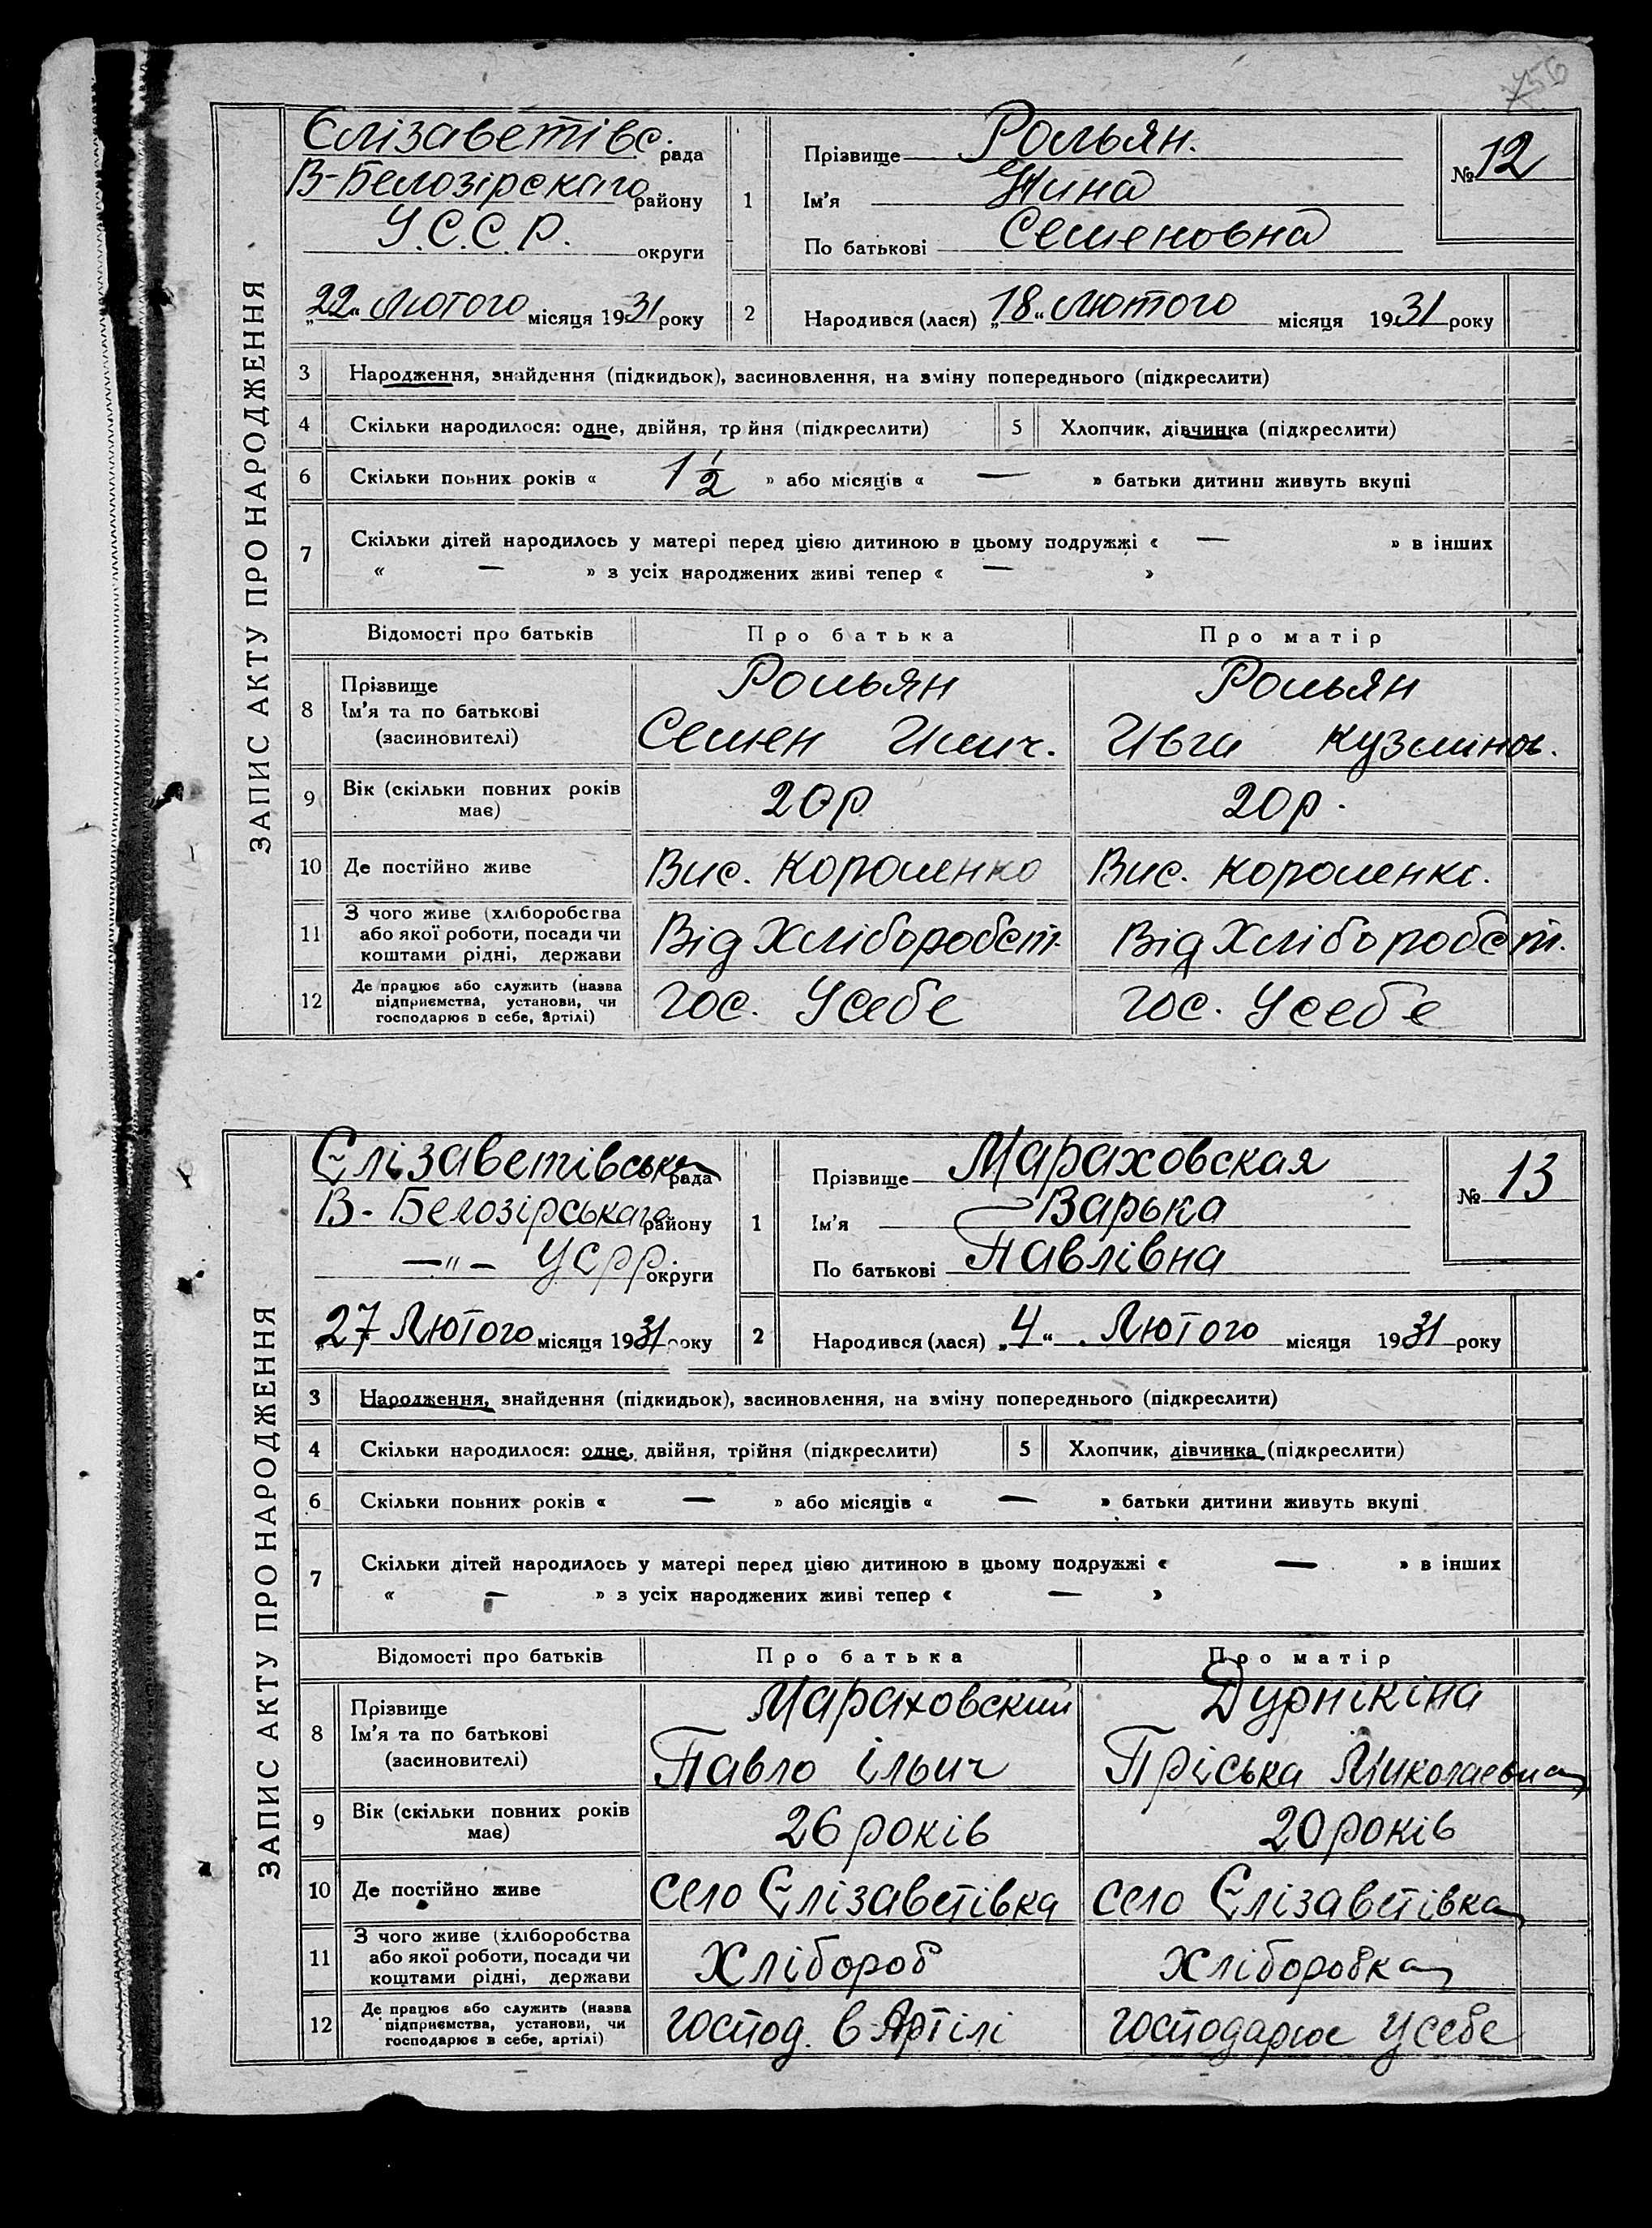 756
ЗАПИС АКТУ ПРО НАРОДЖЕННЯ
Єлізаветівс. рада
В-Белозірскаго району
У.С.С.Р. округи
„22“ Лютого місяця 1931 року
1
Прізвище Рольян.
Ім'я Жина
По батькові Семеновна
№ 12
2
Народився (лася) „18“ Лютого місяця 1931 року
3 Народження, знайдення (підкидьок), засиновлення, на зміну попереднього (підкреслити)
4 Скільки народилося: одне, двійня, трійня (підкреслити) 5 Хлопчик, дівчинка (підкреслити)
6 Скільки повних років « 1 1/2 » або місяців « — » батьки дитини живуть вкупі
7 Скільки дітей народилось у матері перед цією дитиною в цьому подружжі « — » в інших
« — » з усіх народжених живі тепер « — »
Відомості про батьків Про батька Про матір
8 Прізвище Рольян Рольян
Ім'я та по батькові
(засиновителі) Семен Илич. Ивга Кузмінов.
9 Вік (скільки повних років
має) 20р 20р.
10 Де постійно живе Вис. Короленко Вис. Короленко.
11 З чого живе (хліборобства
або якої роботи, посади чи
коштами рідні, держави Від Хлібопобст. Від Хлібопобст.
12 Де працює або служить (назва
підприємства, установи, чи
господарює в себе, артілі) гос. Усебе гос. Усебе
ЗАПИС АКТУ ПРО НАРОДЖЕННЯ
Єлізаветівська рада
В-Белозірськаго району
—„— УСРР. округи
„27 Лютого місяця 1931 року
1
Прізвище Мараховская
Ім'я Варька
По батькові Павлівна
№ 13
2
Народився (лася) „4“ Лютого місяця 1931 року
3 Народження, знайдення (підкидьок), засиновлення, на зміну попереднього (підкреслити)
4 Скільки народилося: одне, двійня, трійня (підкреслити) 5 Хлопчик, дівчинка (підкреслити)
6 Скільки повних років « — » або місяців « — » батьки дитини живуть вкупі
7 Скільки дітей народилось у матері перед цією дитиною в цьому подружжі « — » в інших
« — » з усіх народжених живі тепер « — »
Відомості про батьків Про батька Про матір
8 Прізвище Мараховский Дурнікіна
Ім'я та по батькові
(засиновителі) Павло Ільич Пріська Миколаевна
9 Вік (скільки повних років
має) 26 років 20 років
10 Де постійно живе село Єлізаветівка село Єлізаветівка
11 З чого живе (хліборобства
або якої роботи, посади чи
коштами рідні, держави Хлібороб Хліборобка
12 Де працює або служить (назва
підприємства, установи, чи
господарює в себе, артілі) господ. в Артілі господарює Усебе